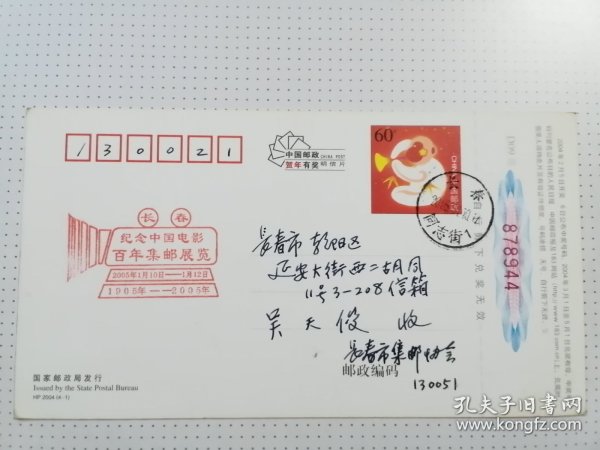 130021
中国邮政
CHINA POST
贺年有奖
明信片
60
长春
纪念中国电影
百年集邮展览
2005年1月10日——1月12日
1905年——2005年
长春市朝阳区
延安大街西二胡同
11号3-208信箱
吴天俊 收
长春市集邮协会
邮政编码
130051
国家邮政局发行
Issued by the State Postal Bureau
HP 2004 (4-1)
878944
下兑奖无效
孔夫子旧书网
www.kongfz.com